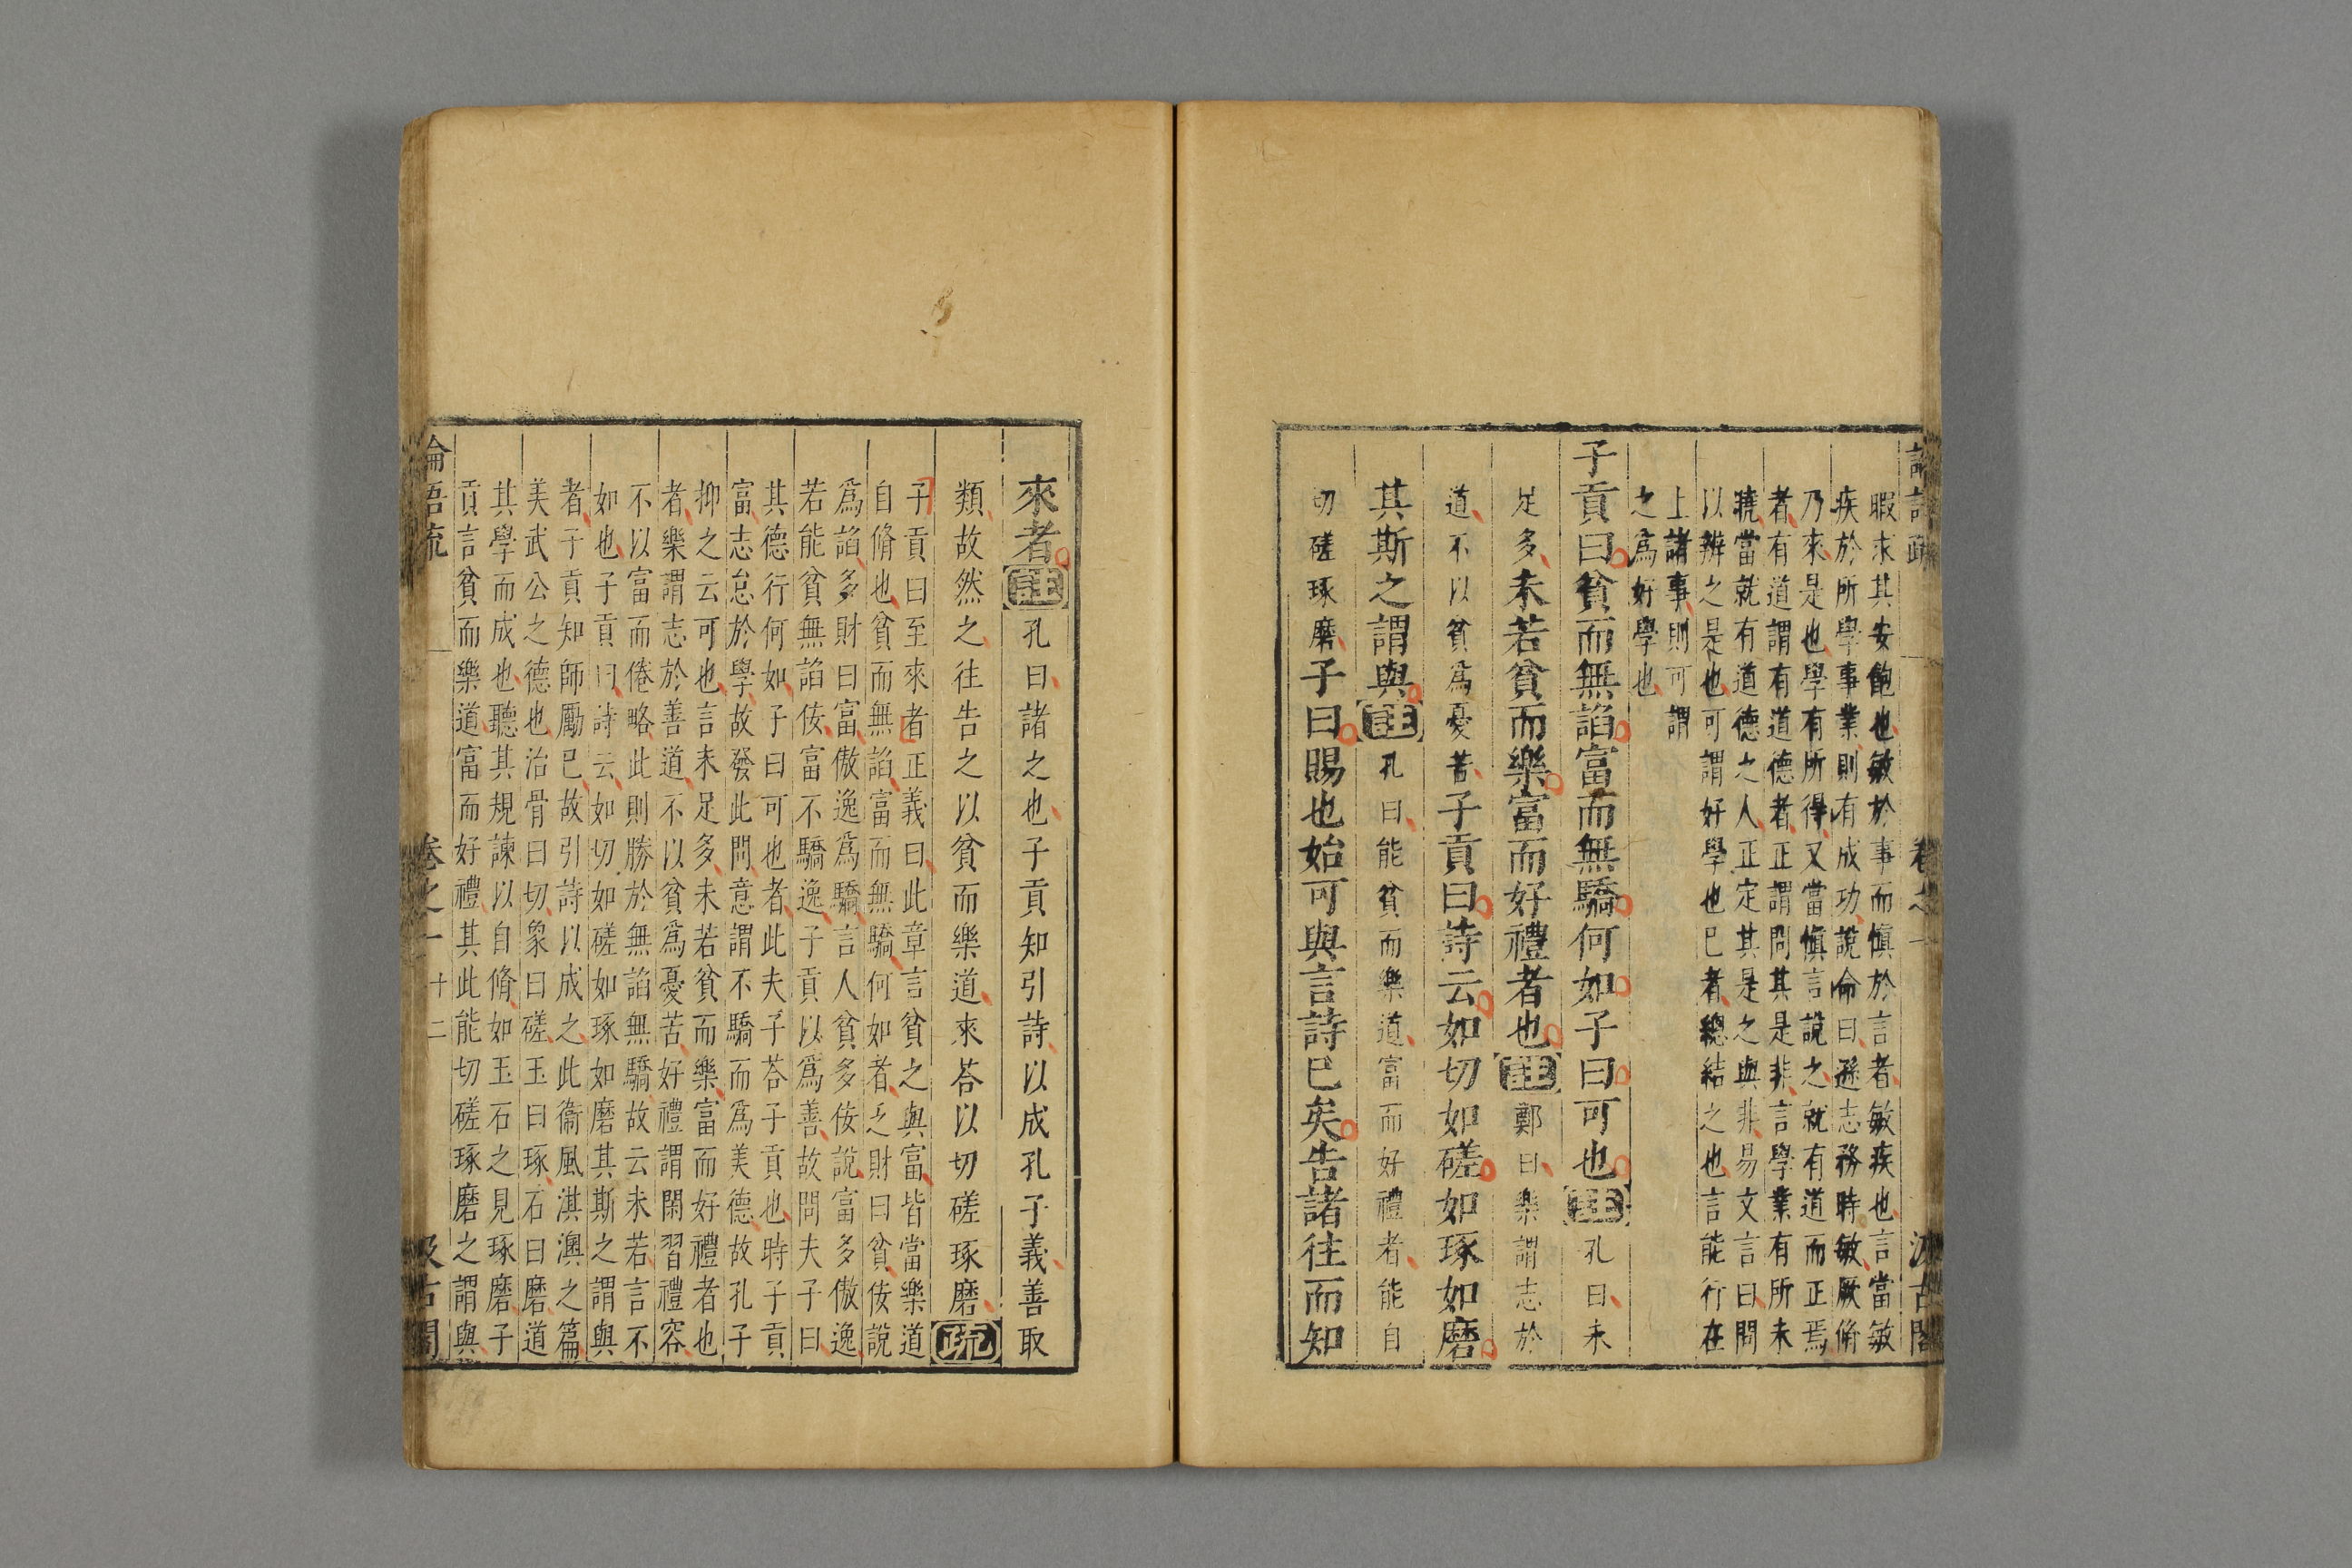 暇求其安飽也敏於事而慎於言者敏疾也言當敏
疾於所學事業則有成功說命曰遜志務時敏厥脩
乃來是也學有所得又當慎言說之就有道而正焉
者有道謂有道德者正謂問其是非言學業有所未
曉當就有道德之人正定其是之與非易文言曰問
以辨之是也可謂好學也已者總結之也言能行在
上諸事則可謂
之爲好學也
子貢曰貧而無諂富而無驕何如子曰可也註孔曰未
足多未若貧而樂富而好禮者也註鄭曰樂謂志於
道不以貧爲憂苦子貢曰詩云如切如磋如琢如磨
其斯之謂與註孔曰能貧而樂道富而好禮者能自
切磋琢磨子曰賜也始可與言詩已矣告諸往而知
來者註孔曰諸之也子貢知引詩以成孔子義善取
類故然之往告之以貧而樂道來荅以切磋琢磨疏
子貢曰至來者正義曰此章言貧之與富皆當樂道
自脩也貧而無諂富而無驕何如者乏財曰貧佞說
爲諂多財曰富傲逸爲驕言人貧多佞說富多傲逸
若能貧無諂佞富不驕逸子貢以爲善故問夫子曰
其德行何如子曰可也者此夫子荅子貢也時子貢
富志怠於學故發此問意謂不驕而爲美德故孔子
抑之云可也言未足多未若貧而樂富而好禮者也
者樂謂志於善道不以貧爲憂苦好禮謂閑習禮容
不以富而倦略此則勝於無諂無驕故云未若言不
如也子貢曰詩云如切如磋如琢如磨其斯之謂與
者子貢知師勵已故引詩以成之此衞風淇澳之篇
美武公之德也治骨曰切象曰磋玉曰琢石曰磨道
其學而成也聽其規諫以自脩如玉石之見琢磨子
貢言貧而樂道富而好禮其此能切磋琢磨之謂與
論語疏 卷之一 十二 汲古閣